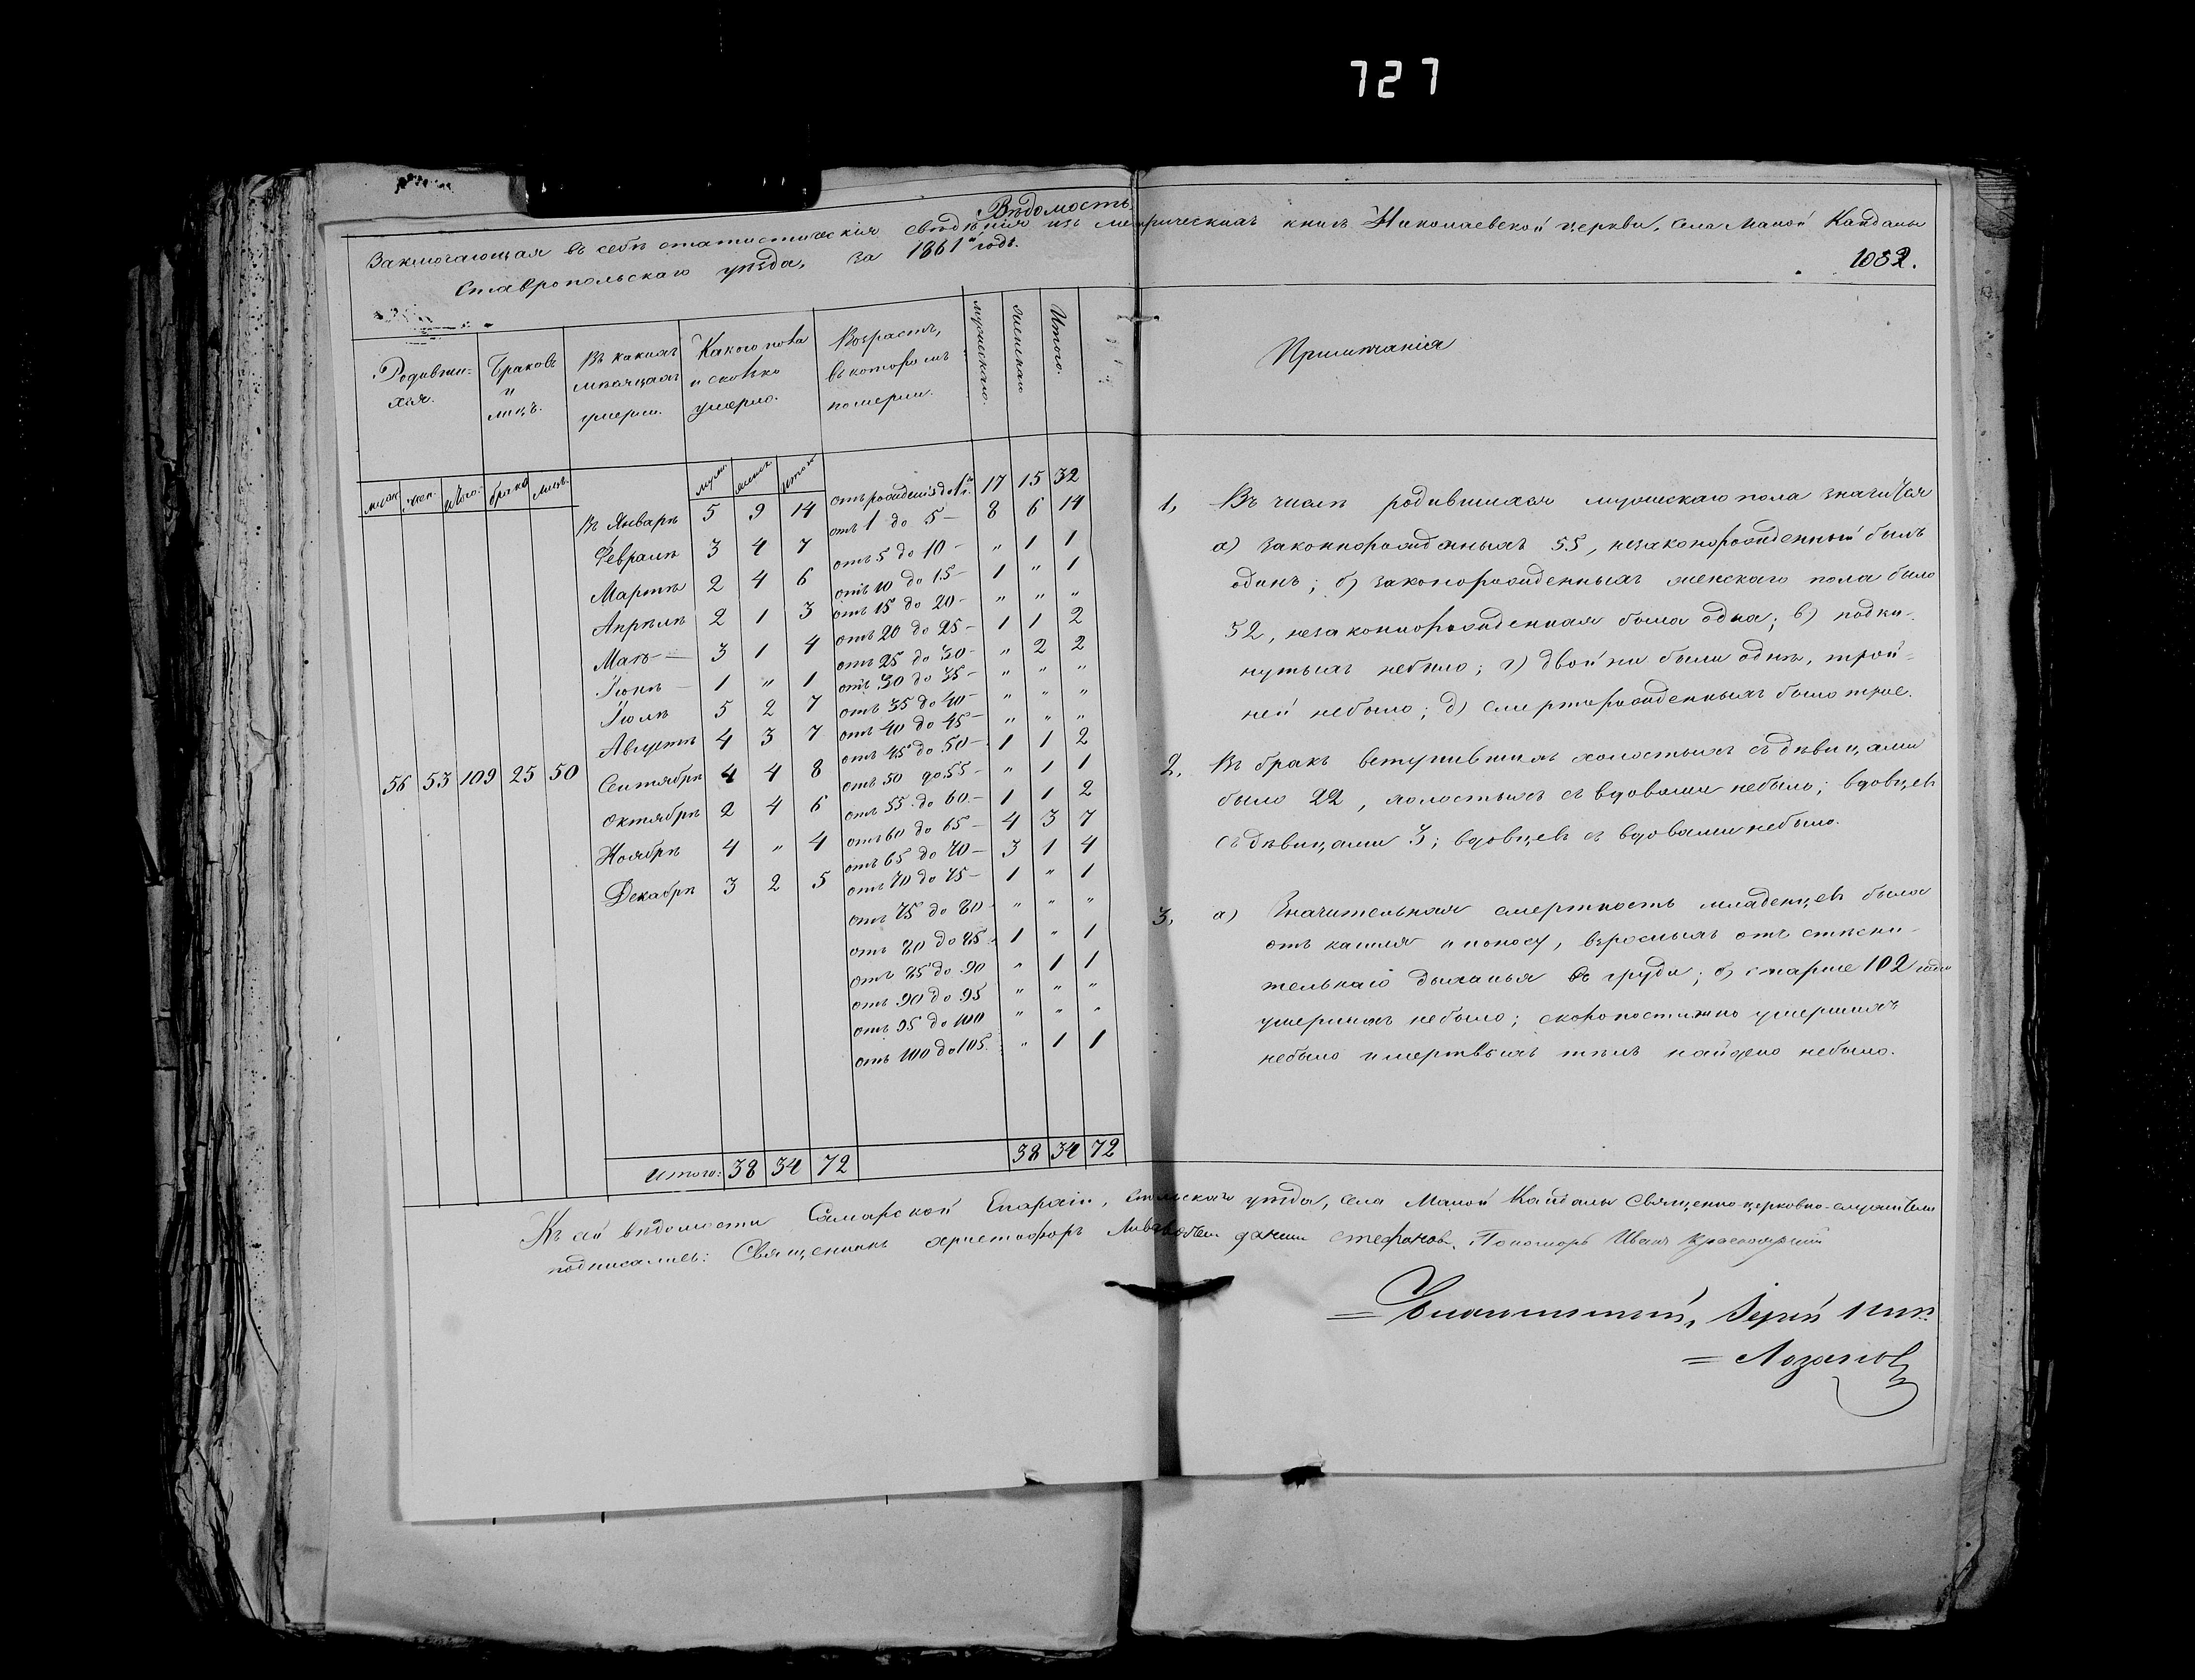 727
Вѣдомость
Заключающая въ себѣ статистическія свѣдѣнія изъ метрическихъ книгъ Николаевской церкви, села Малой Кандалы
Ставропольскаго уѣзда, за 1861й годъ.
1082.
Родивши-
хся.
Браковъ
и
лицъ.
Въ какихъ
мѣсяцахъ
умерли.
Какого пола
и сколько
умерло.
Возрастъ,
въ которомъ
померли.
мужескаго.
женскаго
Итого.
Примѣчанія
муж. жен. итого. брако лицъ.
муж. женск итого
56 53 109 25 50
Въ Январѣ 5 9 14
Февралѣ 3 4 7
Мартѣ 2 4 6
Апрѣлѣ 2 1 3
Маѣ — 3 1 4
Іюнѣ — 1 „ 1
Іюлѣ 5 2 7
Августѣ 4 3 7
Сентябрѣ 4 4 8
Октябрѣ 2 4 6
Ноябрѣ 4 „ 4
Декабрѣ 3 2 5
Итого: 38 34 72
отъ рожденія до 1го 17 15 32
отъ 1 до 5 — 8 6 14
отъ 5 до 10 — „ 1 1
отъ 10 до 15 — 1 „ 1
отъ 15 до 20 — „ „ „
отъ 20 до 25 — 1 1 2
отъ 25 до 30 — „ 2 2
отъ 30 до 35 — „ „ „
отъ 35 до 40 — „ „ „
отъ 40 до 45 — „ „ „
отъ 45 до 50 — 1 1 2
отъ 50 до 55 — „ 1 1
отъ 55 до 60 — 1 1 2
отъ 60 до 65 — 4 3 7
отъ 65 до 70 — 3 1 4
отъ 70 до 75 — 1 „ 1
отъ 75 до 80 „ „ „
отъ 80 до 85 1 „ 1
отъ 85 до 90 „ 1 1
отъ 90 до 95 „ „ „
отъ 95 до 100 „ „ „
отъ 100 до 105. „ 1 1
38 34 72
1, Въ числѣ родившихся мужескаго пола значится
а) законнорожденныхъ 55, незаконорожденный былъ
одинъ; б) законорожденныхъ женскаго пола было
52, незаконнорожденная была одна; в) подки-
нутыхъ небыло; г) двойни были однѣ, трой-
ней небыло; д) смерторожденныхъ было трое.
2, Въ бракъ вступившихъ холостыхъ съ дѣвицами
было 22, холостыхъ съ вдовами небыло; вдовцевъ
съ дѣвицами 3; вдовцевъ съ вдовами небыло.
3, а) Значительная смертность младенцевъ была
отъ кашля и поносу, взрослыхъ отъ стѣсни-
тельнаго дыханья въ груди; б) старше 102 года
умершихъ небыло; скоропостижно умершихъ
небыло и мертвыхъ тѣлъ найдено небыло.
Къ сей вѣдомости Самарской Епархіи, уѣзда, села Малой Кандалы Священно-церковно-служители
подписались: Священникъ Христофоръ Стефановъ. Пономарь Иванъ
Благочинный, Іерей
= Лозановъ